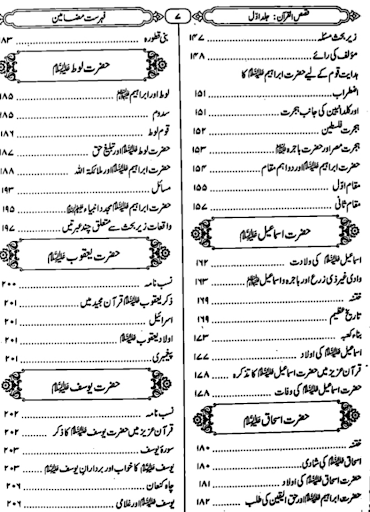 قصص القرآن: جلد اوّل
۷
فہرست مضامین
زیر بحث مسئلہ ۱۴۷
مؤلف کی رائے ۱۴۸
ہدایت قوم کے لیے حضرت ابراہیم علیہ السلام کا
اضطراب ۱۵۱
اور کلدانیین کی جانب ہجرت ۱۵۱
ہجرت فلسطین ۱۵۲
ہجرت مصر اور حضرت ہاجرہ علیہا السلام ۱۵۳
حضرت ابراہیم علیہ السلام اور دو اہم مقام ۱۵۴
مقام اوّل ۱۵۵
مقام ثانی ۱۵۷
حضرت اسماعیل علیہ السلام
اسماعیل علیہ السلام کی ولادت ۱۶۲
وادی غیر ذی زرع اور ہاجرہ و اسماعیل علیہ السلام ۱۶۳
ختنہ ۱۶۹
تاریخ عظیم ۱۶۹
بناء کعبہ ۱۷۳
اسماعیل علیہ السلام کی اولاد ۱۷۷
قرآن عزیز میں حضرت اسماعیل علیہ السلام کا تذکرہ ۱۷۸
حضرت اسماعیل علیہ السلام کی وفات ۱۷۸
حضرت اسحاق علیہ السلام
ختنہ ۱۸۰
اسحاق علیہ السلام کی شادی ۱۸۰
حضرت اسحاق علیہ السلام کی اولاد ۱۸۱
حضرت ابراہیم علیہ السلام اور حق الیقین کی طلب ۱۸۲
بنی قطورہ ۱۸۳
حضرت لوط علیہ السلام
لوط اور ابراہیم علیہ السلام ۱۸۵
سدوم ۱۸۵
قوم لوط ۱۸۶
حضرت لوط علیہ السلام اور تبلیغ حق ۱۸۷
حضرت ابراہیم علیہ السلام اور ملائکۃ اللہ ۱۸۸
مسائل ۱۹۳
حضرت ابراہیم علیہ السلام مجدد انبیاء علیہم السلام ۱۹۵
واقعات زیر بحث سے متعلق چند عبرتیں ۱۹۷
حضرت یعقوب علیہ السلام
نسب نامہ ۲۰۰
ذکر یعقوب علیہ السلام قرآن مجید میں ۲۰۱
اسرائیل ۲۰۱
اولاد یعقوب علیہ السلام ۲۰۱
پیغمبری ۲۰۱
حضرت یوسف علیہ السلام
نسب نامہ ۲۰۲
قرآن عزیز میں حضرت یوسف علیہ السلام کا ذکر ۲۰۲
سورۂ یوسف ۲۰۳
یوسف علیہ السلام کا خواب اور برادران یوسف علیہ السلام ۲۰۳
چاہ کنعان ۲۰۶
یوسف علیہ السلام اور غلامی ۲۰۶